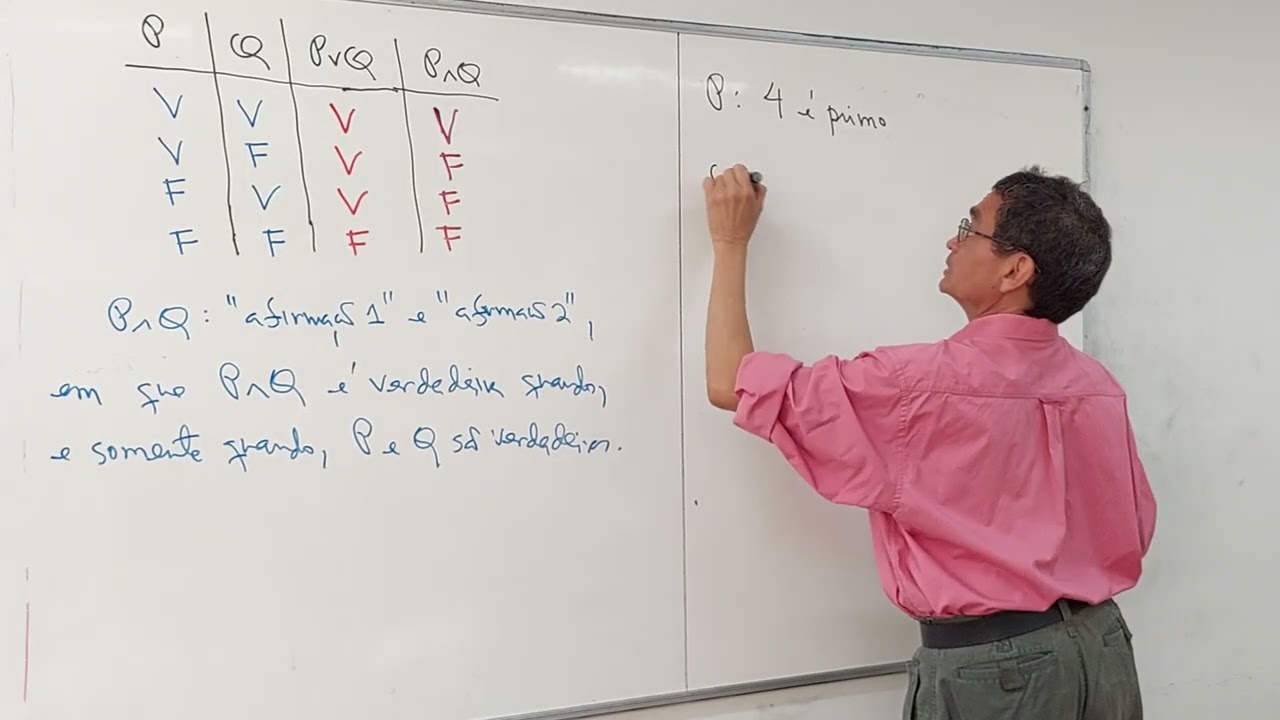 P Q P∨Q P∧Q
V V V V
V F V F
F V V F
F F F F
P∧Q: "afirmação 1" e "afirmação 2",
em que P∧Q é verdadeira quando,
e somente quando, P e Q são verdadeiras.
P: 4 é primo